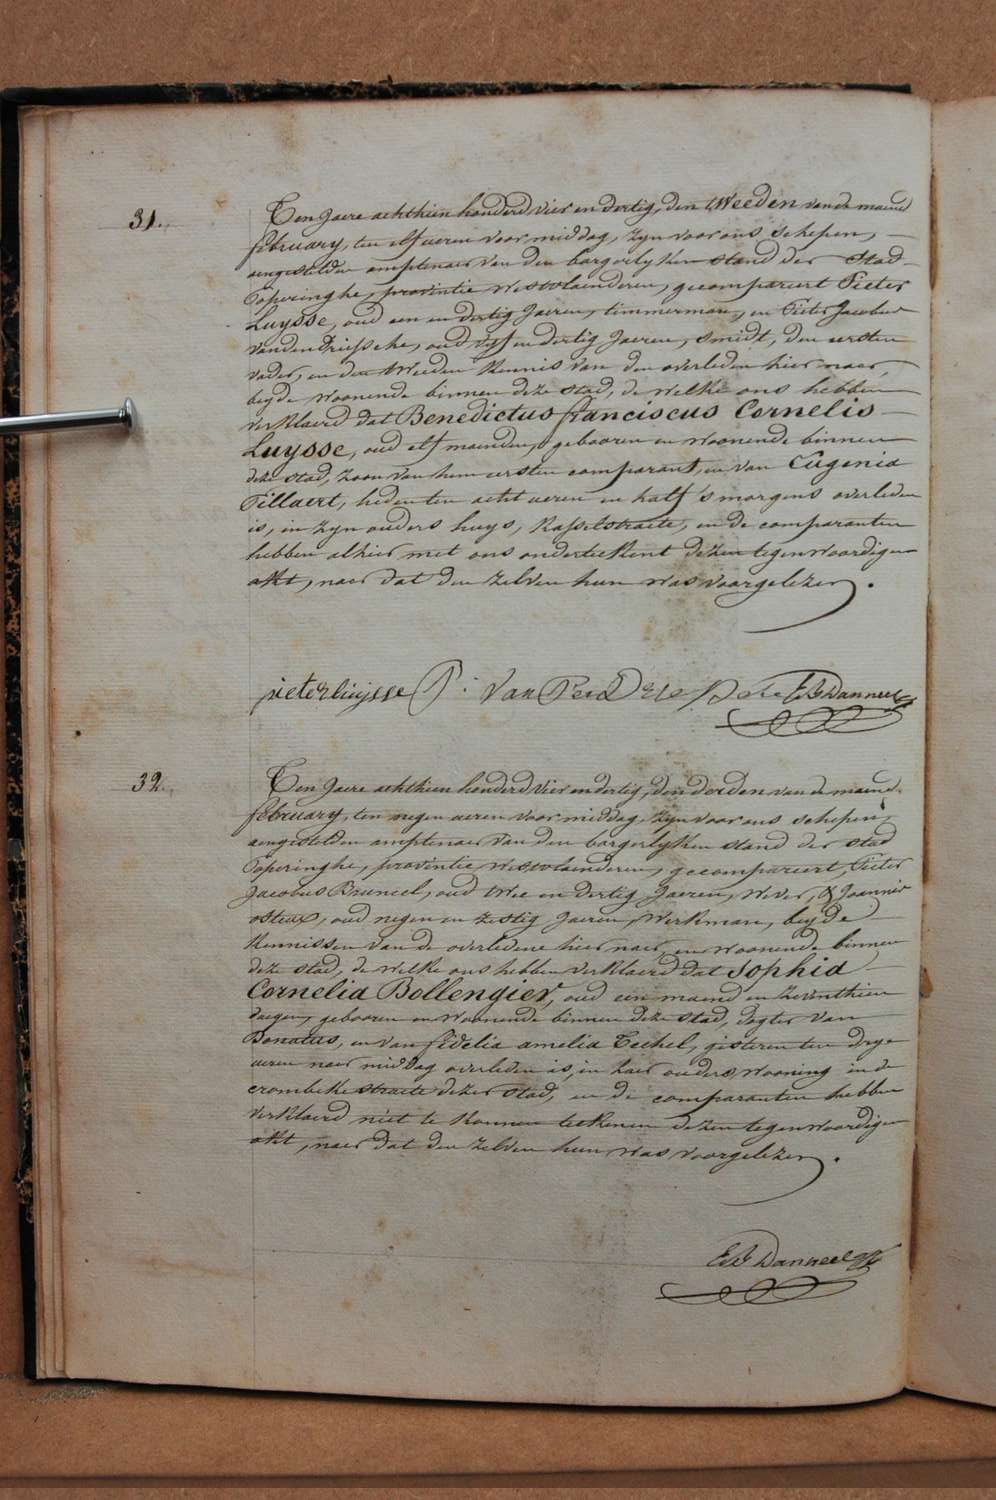 31.
Ten Jaere achthien honderd vier en dertig, den tWeeden van de maend
february, ten elf ueren voor middag, zyn voor ons schepen,
aengestelden amptenaer van den borgerlyken stand der Stad
Poperinghe, provintie Westvlaenderen, gecompareert Pieter
Luysse, oud een en dertig Jaeren, timmerman, en Pieter Jacobus
Vanden Driessche, oud vyf en dertig Jaeren, Smidt, den eersten
vader, en den tWeeden Kennis van den overleden hier naer,
beyde Woonende binnen deze Stad, de Welke ons hebben
verKlaerd dat Benedictus franciscus Cornelis
Luysse, oud elf maenden, gebooren en Woonende binnen
deze stad, zoon van hem eersten comparant, en van Eugenia
Tillaert, heden ten acht ueren en half 's morgens overleden
is, in zyn ouders huys, Kasselstraete, en de comparanten
hebben alhier met ons onderteeKent dezen tegenWoordigen
akt, naer dat den zelven hun Was voorgelezen.
pieter luijsse P: Van Den DrieSsche E B Danneel
32.
Ten Jaere achthien honderd vier en dertig, den derden van de maend
february, ten negen ueren voor middag, zyn voor ons schepen,
aengestelden amptenaer van den borgerlyken stand der stad
Poperinghe, provintie Westvlaenderen, gecompareert, Pieter
Jacobus Bruneel, oud tWee en dertig Jaeren, Wever, & Joannes
osteux, oud negen en zestig Jaeren, Werkman, beyde
Kennissen van de overledene hier naer, en Woonende binnen
deze stad, de Welke ons hebben verKlaerd dat Sophia
Cornelia Bollengier, oud een maend en zeventhien
daegen, gebooren en Woonende binnen deze stad, dogter van
Donatus, en van fidelia amelia Techel, gisteren ten drye
ueren naer middag overleden is, in haer ouders Wooning in de
crombeke straete dezer stad, en de comparanten hebben
verKlaerd niet te Konnen teeKenen dezen tegenWoordigen
akt, naer dat den zelven hun Was voorgelezen.
E B Danneel